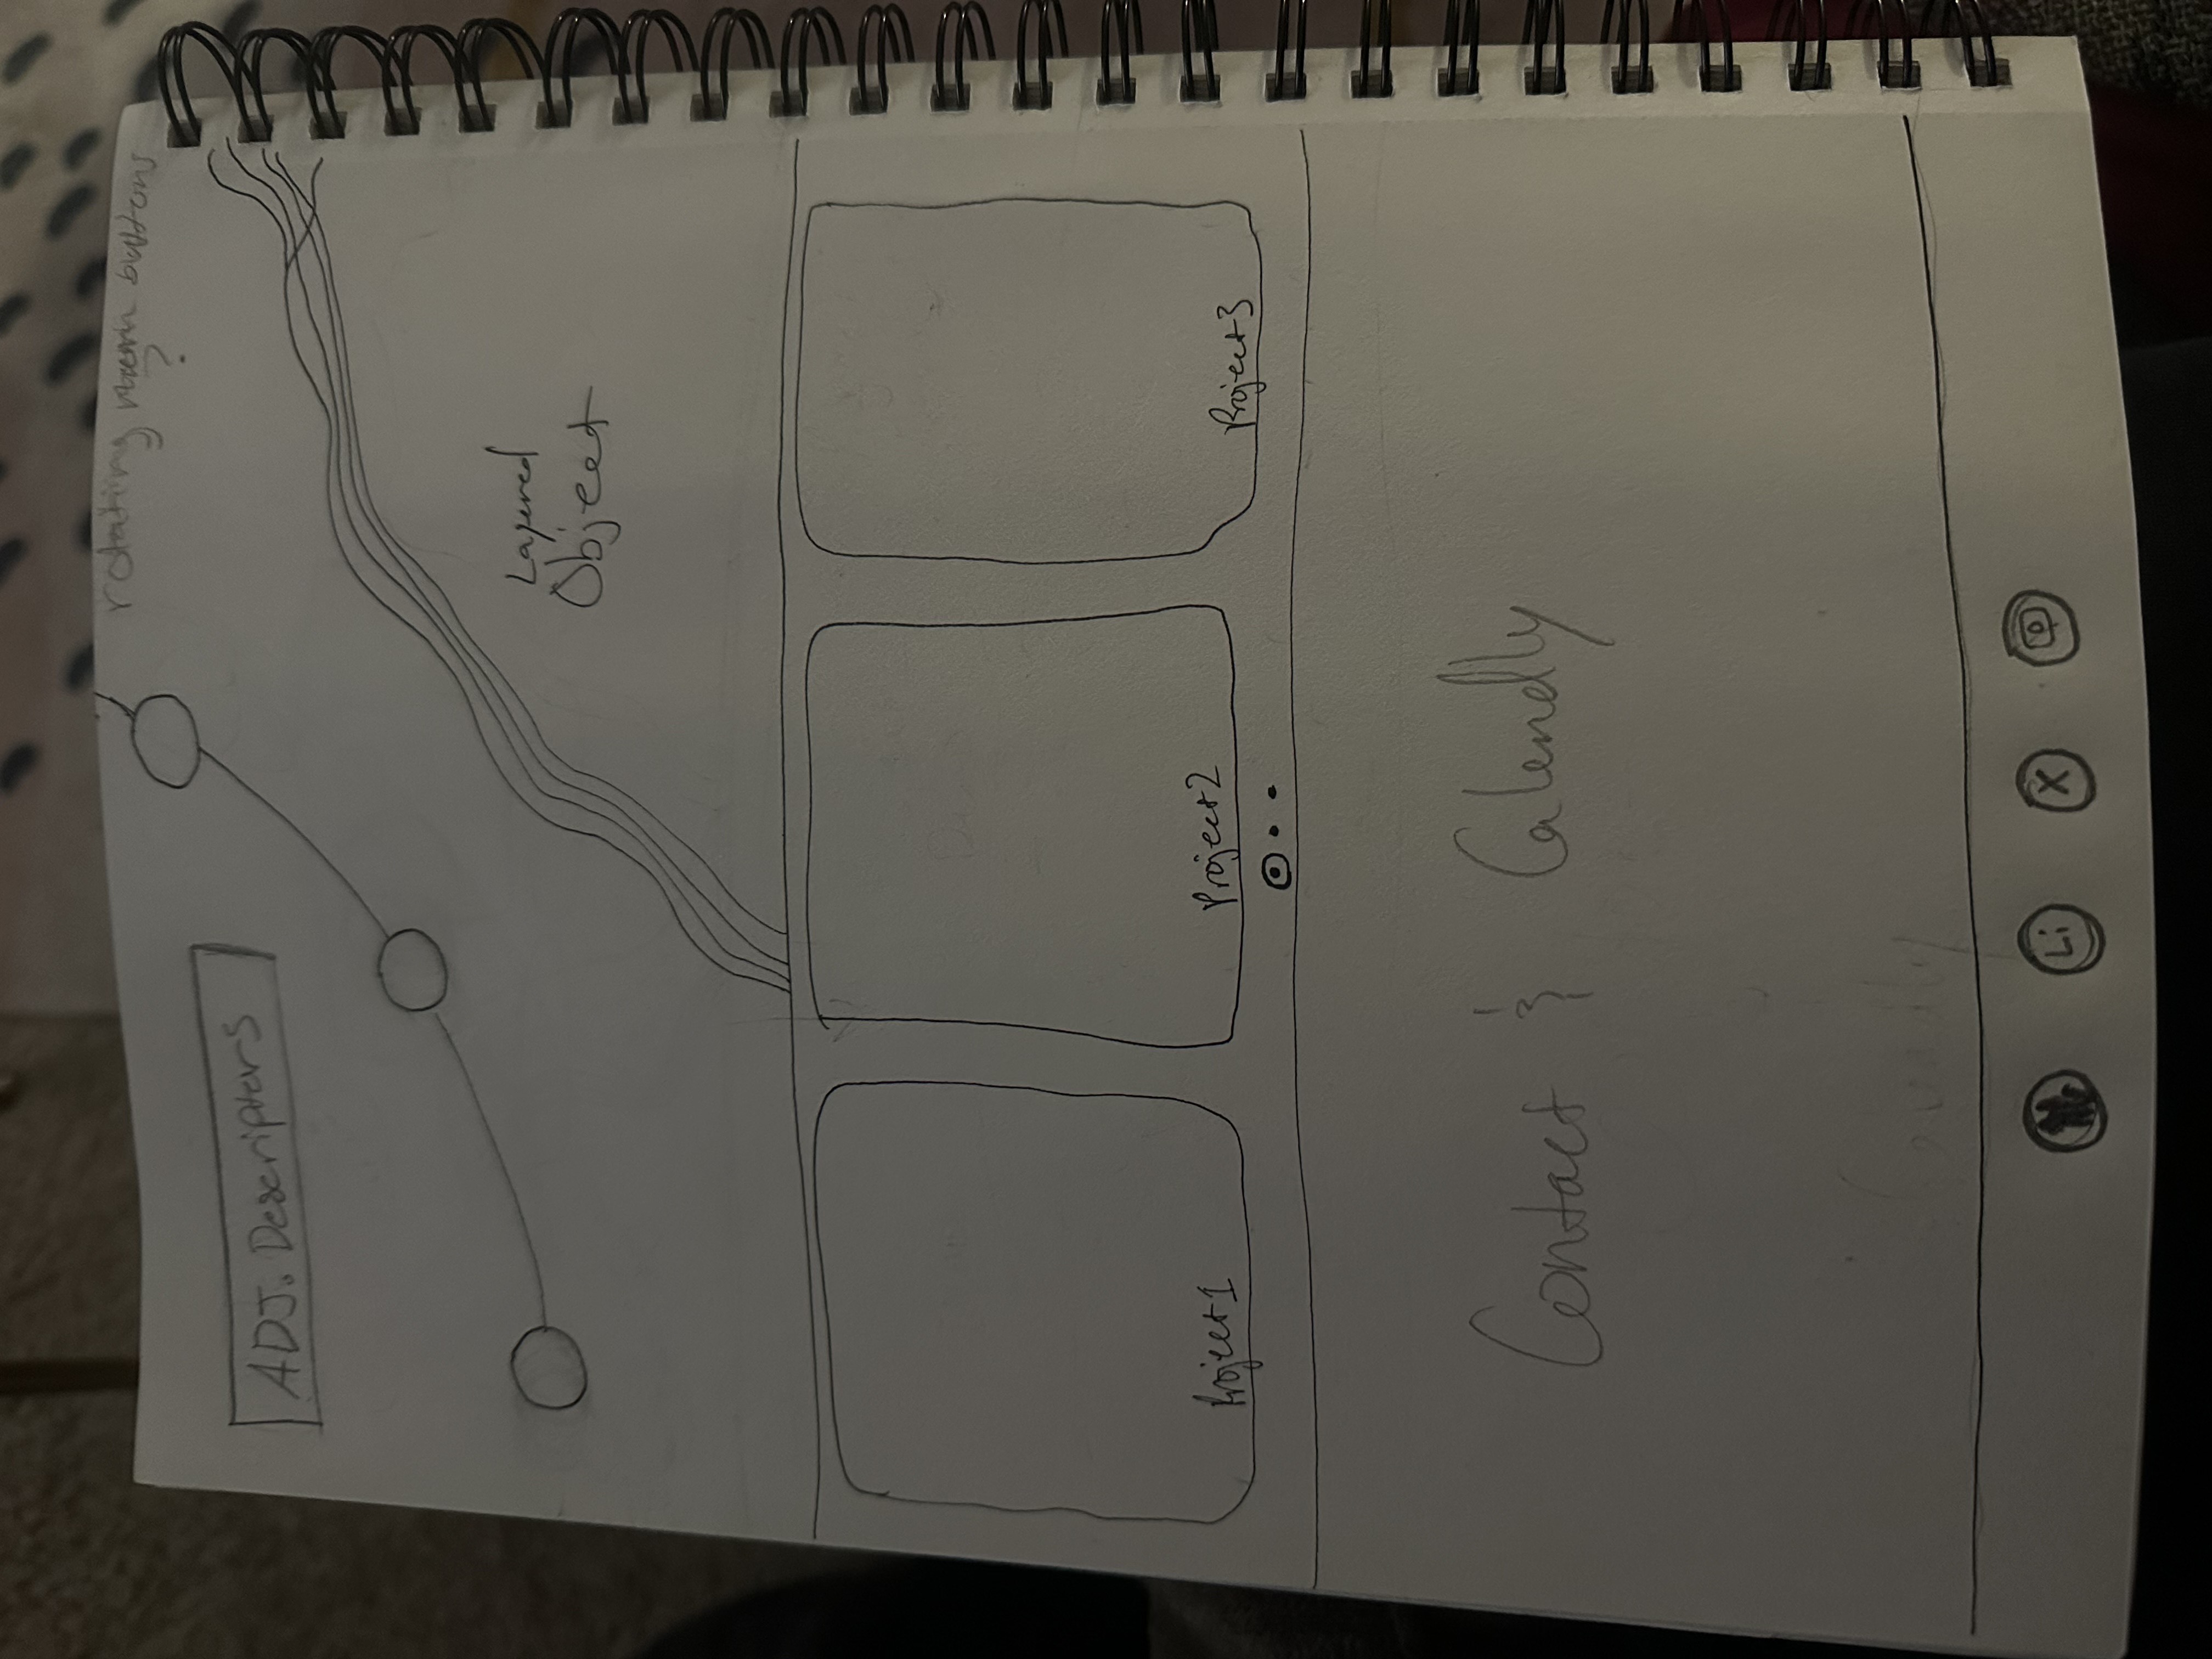 rotating menu buttons
?
ADJ. Descriptors
Layered
Object
Project1
Project2
Project3
Contact & Calendly
Li
X